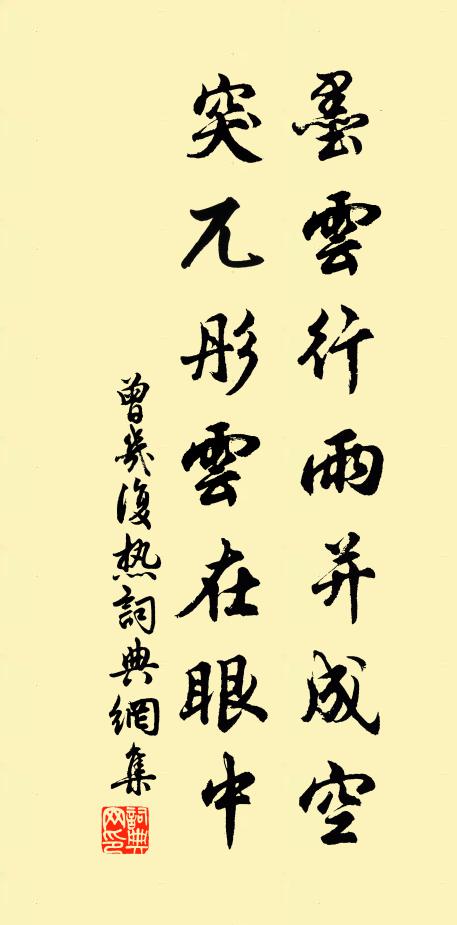 墨雲行雨并成空
突兀彤雲在眼中
曾幾復熱詞典網集
詞典網印